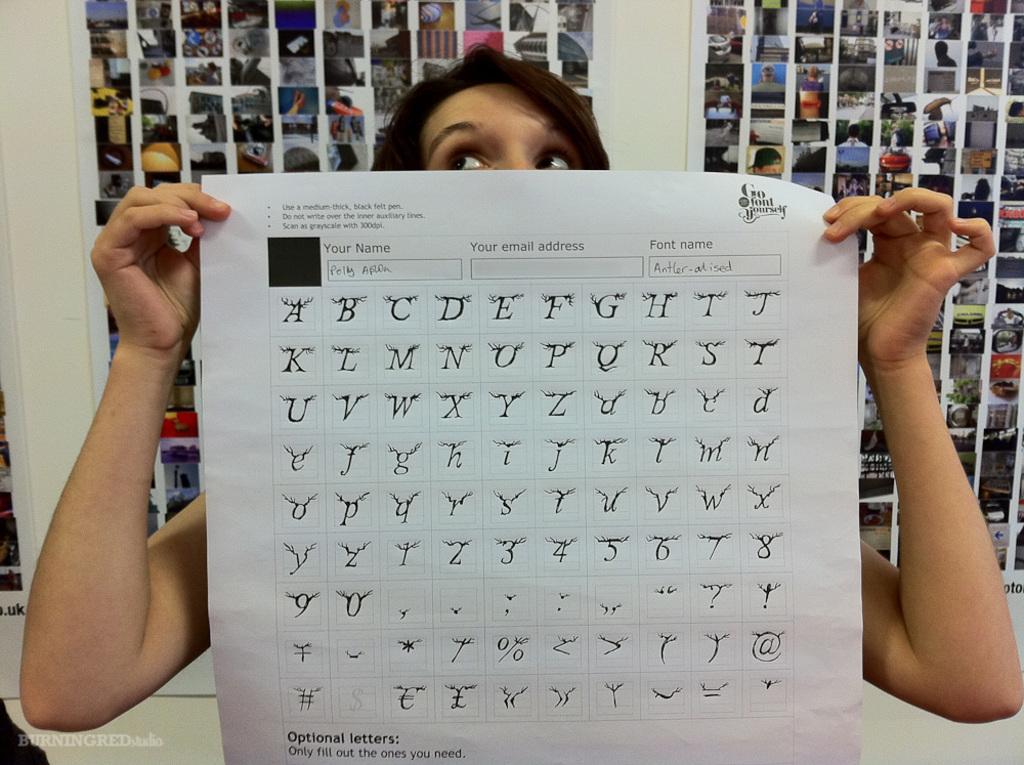 • Use a medium-thick, black felt pen.
• Do not write over the inner auxiliary lines.
• Scan as grayscale with 300dpi.
Go font Yourself
Your Name Your email address Font name
Polly Antler-alised
A B C D E F G H I J
K L M N O P Q R S T
U V W X Y Z a b c d
e f g h i j k l m n
o p q r s t u v w x
y z 1 2 3 4 5 6 7 8
9 0 , . ; : „ “ ? !
+ - * / % < > ( ) @
# $ € £ « »
Optional letters:
Only fill out the ones you need.
o.uk
BURNINGREDstudio